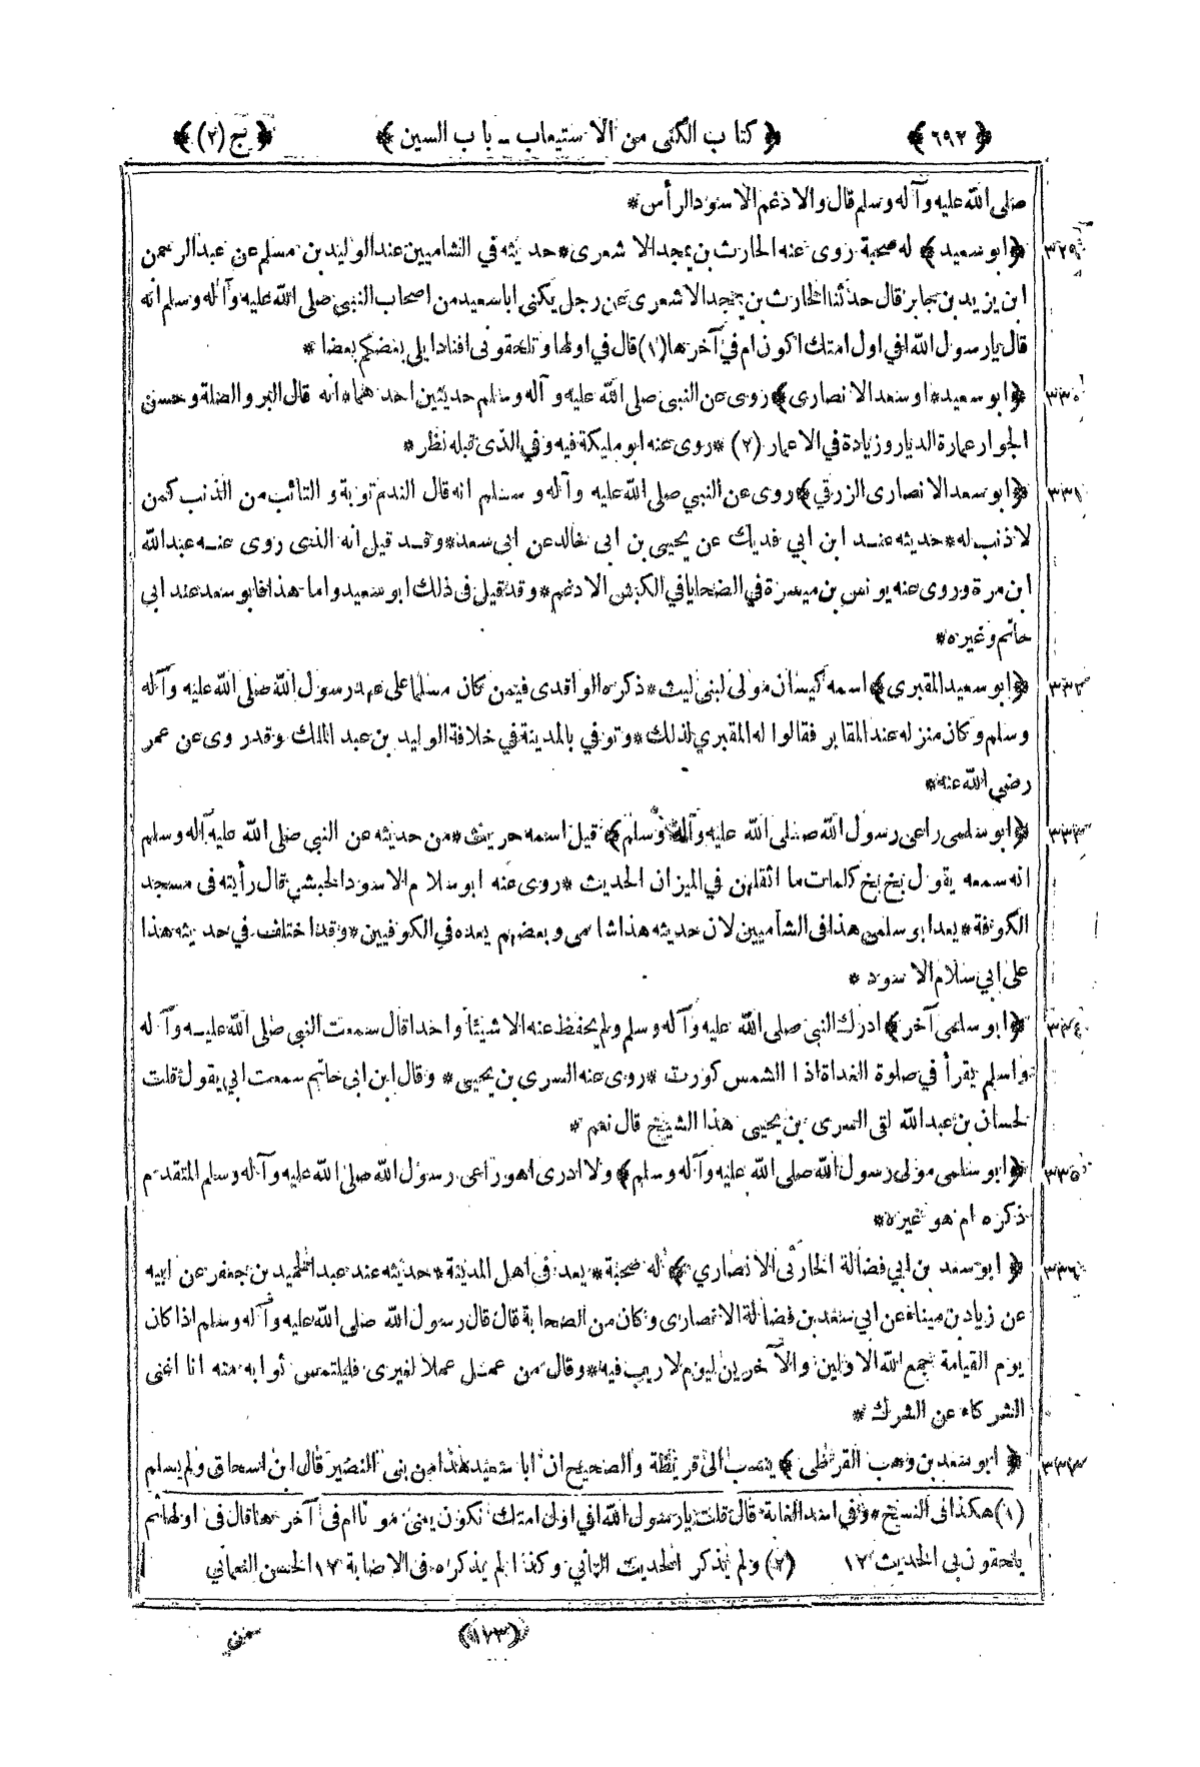 ﴿ ٦٩٢ ﴾ ﴿ كتاب الكنى من الاستيعاب ـ باب السين ﴾ ﴿ ج (٢) ﴾
صلى الله عليه وآله وسلم قال والادغم الاسود الرأس *
٣٢٩ ﴿ ابو سعيد ﴾ له صحبة روى عنه الحارث بن يمجد الاشعرى * حديثه في الشاميين عند الوليد بن مسلم عن عبد الرحمن
ابن يزيد بن جابر قال حدثنا الحارث بن يمجد الاشعرى عن رجل يكنى ابا سعيد من اصحاب النبي صلى الله عليه وآله وسلم انه
قال يا رسول الله افي اول امتك اكون ام في آخرها (١) قال في اولها وتلحقونى افنادا يلى بعضكم بعضا *
٣٣٠ ﴿ ابو سعيد * او سعد الانصارى ﴾ روى عن النبي صلى الله عليه وآله وسلم حديثين احدهما * انه قال البر والصلة وحسن
الجوار عمارة الديار وزيادة في الاعمار (٢) * روى عنه ابو مليكة فيه وفي الذى قبله نظر *
٣٣١ ﴿ ابو سعد الانصارى الزرقي ﴾ روى عن النبي صلى الله عليه وآله وسلم انه قال الندم توبة والتائب من الذنب كمن
لا ذنب له * حديثه عند ابن ابي فديك عن يحيى بن ابى خالد عن ابى سعد * وقد قيل انه الذى روى عنه عبد الله
ابن مرة وروى عنه يونس بن ميسرة في الضحايا في الكبش الادغم * وقد قيل فى ذلك ابو سعيد واما هذا فابو سعد عند ابى
حاتم وغيره *
٣٣٢ ﴿ ابو سعيد المقبرى ﴾ اسمه كيسان مولى لبنى ليث * ذكره الواقدى فيمن كان مسلما على عهد رسول الله صلى الله عليه وآله
وسلم وكان منزله عند المقابر فقالوا له المقبري لذلك * وتوفي بالمدينة في خلافة الوليد بن عبد الملك وقد روى عن عمر
رضي الله عنه *
٣٣٣ ﴿ ابو سلمى راعى رسول الله صلى الله عليه وآله وسلم ﴾ قيل اسمه حريث * من حديثه عن النبي صلى الله عليه وآله وسلم
انه سمعه يقول بخ بخ كلمات ما اثقلهن في الميزان الحديث * روى عنه ابو سلام الاسود الحبشي قال رأيته فى مسجد
الكوفة * يعد ابو سلمى هذا فى الشأميين لان حديثه هذا شامى وبعضهم يعده في الكوفيين * وقد اختلف في حديثه هذا
على ابي سلام الاسود *
٣٣٤ ﴿ ابو سلمى آخر ﴾ ادرك النبي صلى الله عليه وآله وسلم ولم يحفظ عنه الا شيئا واحدا قال سمعت النبي صلى الله عليه وآله
واسلم يقرأ في صلوة الغداة اذا الشمس كورت * روى عنه السرى بن يحيى * وقال ابن ابى حاتم سمعت ابي يقول قلت
لحسان بن عبد الله لقى السرى بن يحيى هذا الشيخ قال نعم *
٣٣٥ ﴿ ابو سلمى مولى رسول الله صلى الله عليه وآله وسلم ﴾ ولا ادرى اهو راعى رسول الله صلى الله عليه وآله وسلم المتقدم
ذكره ام هو غيره *
٣٣٦ ﴿ ابو سعد بن ابي فضالة الحارثى الانصاري ﴾ له صحبة * يعد فى اهل المدينة * حديثه عند عبد الحميد بن جعفر عن ابيه
عن زياد بن ميناء عن ابي سعد بن فضالة الانصارى وكان من الصحابة قال قال رسول الله صلى الله عليه وآله وسلم اذا كان
يوم القيامة جمع الله الاولين والآخرين ليوم لا ريب فيه * وقال من عمل عملا لغيرى فليلتمس ثوابه منه انا اغنى
الشركاء عن الشرك *
٣٣٧ ﴿ ابو سعد بن وهب القرظى ﴾ ينسب الى قريظة والصحيح ان ابا سعيد هذا من بنى النضير قال ابن اسحاق ولم يسلم
(١) هكذا فى النسخ * وفي اسد الغابة قال قلت يا رسول الله افي اول امتك نكون يعنى موتا ام فى آخرها قال فى اولها ثم
يلحقون بى الحديث ١٢ (٢) ولم يذكر الحديث الثاني وكذا لم يذكره فى الاصابة ١٢ الحسن النعمانى
(١٧٣)